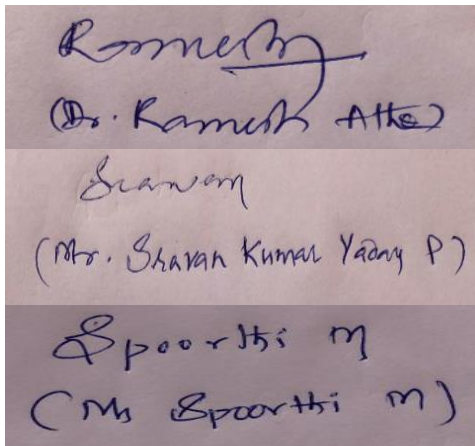 Ramesh
(Dr. Ramesh Athe)
Sravan
(Mr. Sravan Kumar Yadav P)
Spoorthi M
(Ms Spoorthi M)